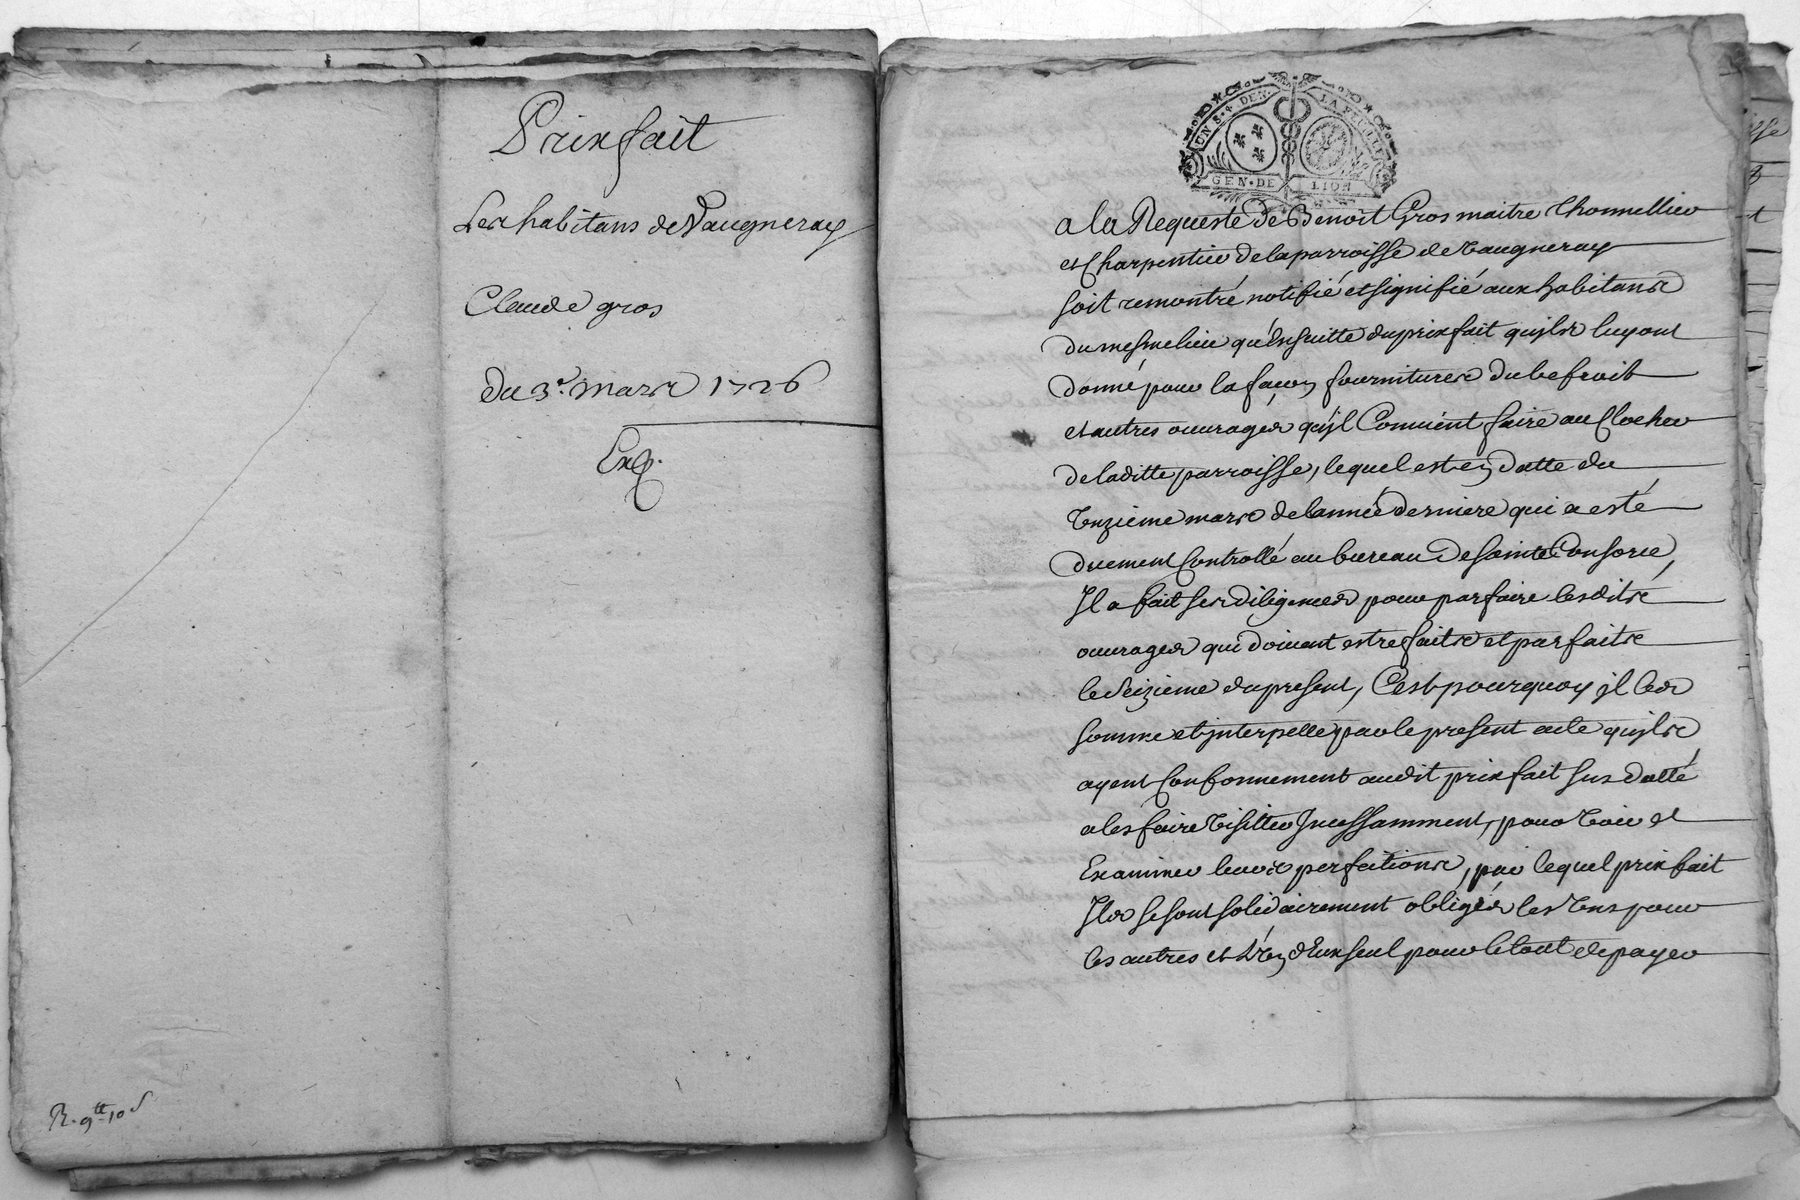 Prixfait
Les habitans de Vaugneray
Claude gros
Du 3e. mars 1726
Exp.
R. 9tt 10 s
UN S. 4 DEN. LA FEUILLE
GEN. DE LION
a la Requeste de Benoit Gros maitre thonnellier
et Charpentier de la parroisse de Vaugneray
soit remontré notifié et signifié aux habitans
du mesme lieu qu'Ensuitte du prixfait quils luy ont
donné pour la façon fournitures du befroit
et autres ouvrages qu'jl Convient faire au Clocher
de laditte parroisse, lequel est en datte du
Unzieme mars de lannée derniere qui a esté
duement Controllé au bureau de sainte Consorce,
Jl a fait ses diligences pour parfaire lesdits
ouvrages qui doivent estre faits et parfaits
le seizieme du present, C'est pourquoy jl les
somme et jnterpelle par le present acte quils
ayent Conformement audit prixfait sus datté
a les faire Visitter Jncessamment, pour Voir et
Examiner leurs perfections, par lequel prixfait
Jls se sont solidairement obligés les Uns pour
les autres et Un d'Eux seul pour le tout de payer